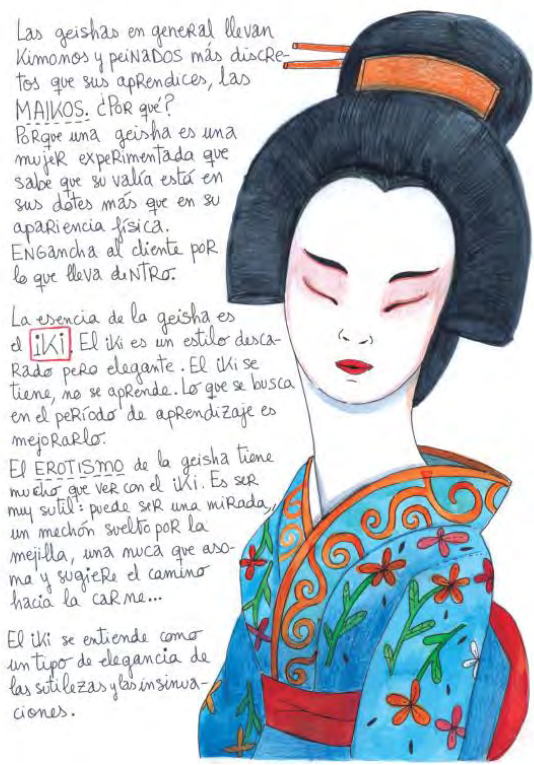 Las geishas en general llevan
Kimonos y peinados más discre-
tos que sus aprendices, las
MAIKOS. ¿Por qué?
Porque una geisha es una
mujer experimentada que
sabe que su valía está en
sus dotes más que en su
apariencia física.
Engancha al cliente por
lo que lleva dentro.
La esencia de la geisha es
el iki. El iki es un estilo desca-
rado pero elegante. El iki se
tiene, no se aprende. Lo que se busca
en el período de aprendizaje es
mejorarlo.
El EROTISMO de la geisha tiene
mucho que ver con el iki. Es ser
muy sutil: puede ser una mirada,
un mechón suelto por la
mejilla, una nuca que aso-
ma y sugiere el camino
hacia la carne...
El iki se entiende como
un tipo de elegancia de
las sutilezas y las insinua-
ciones.